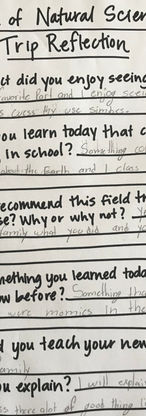 . of Natural Scien
Trip Reflection
ct did you enjoy seeing
favorite Part and I enjoy seei
is
ou learn today that c
in school? Something co
about the Earth and I class
ecommend this field tr
se? Why or why not?
family what you did and y
mething you learned toda
w before? Something tha
were momics in the
d you teach your new
family
ou explain? I will explai
ss there alot of good thing